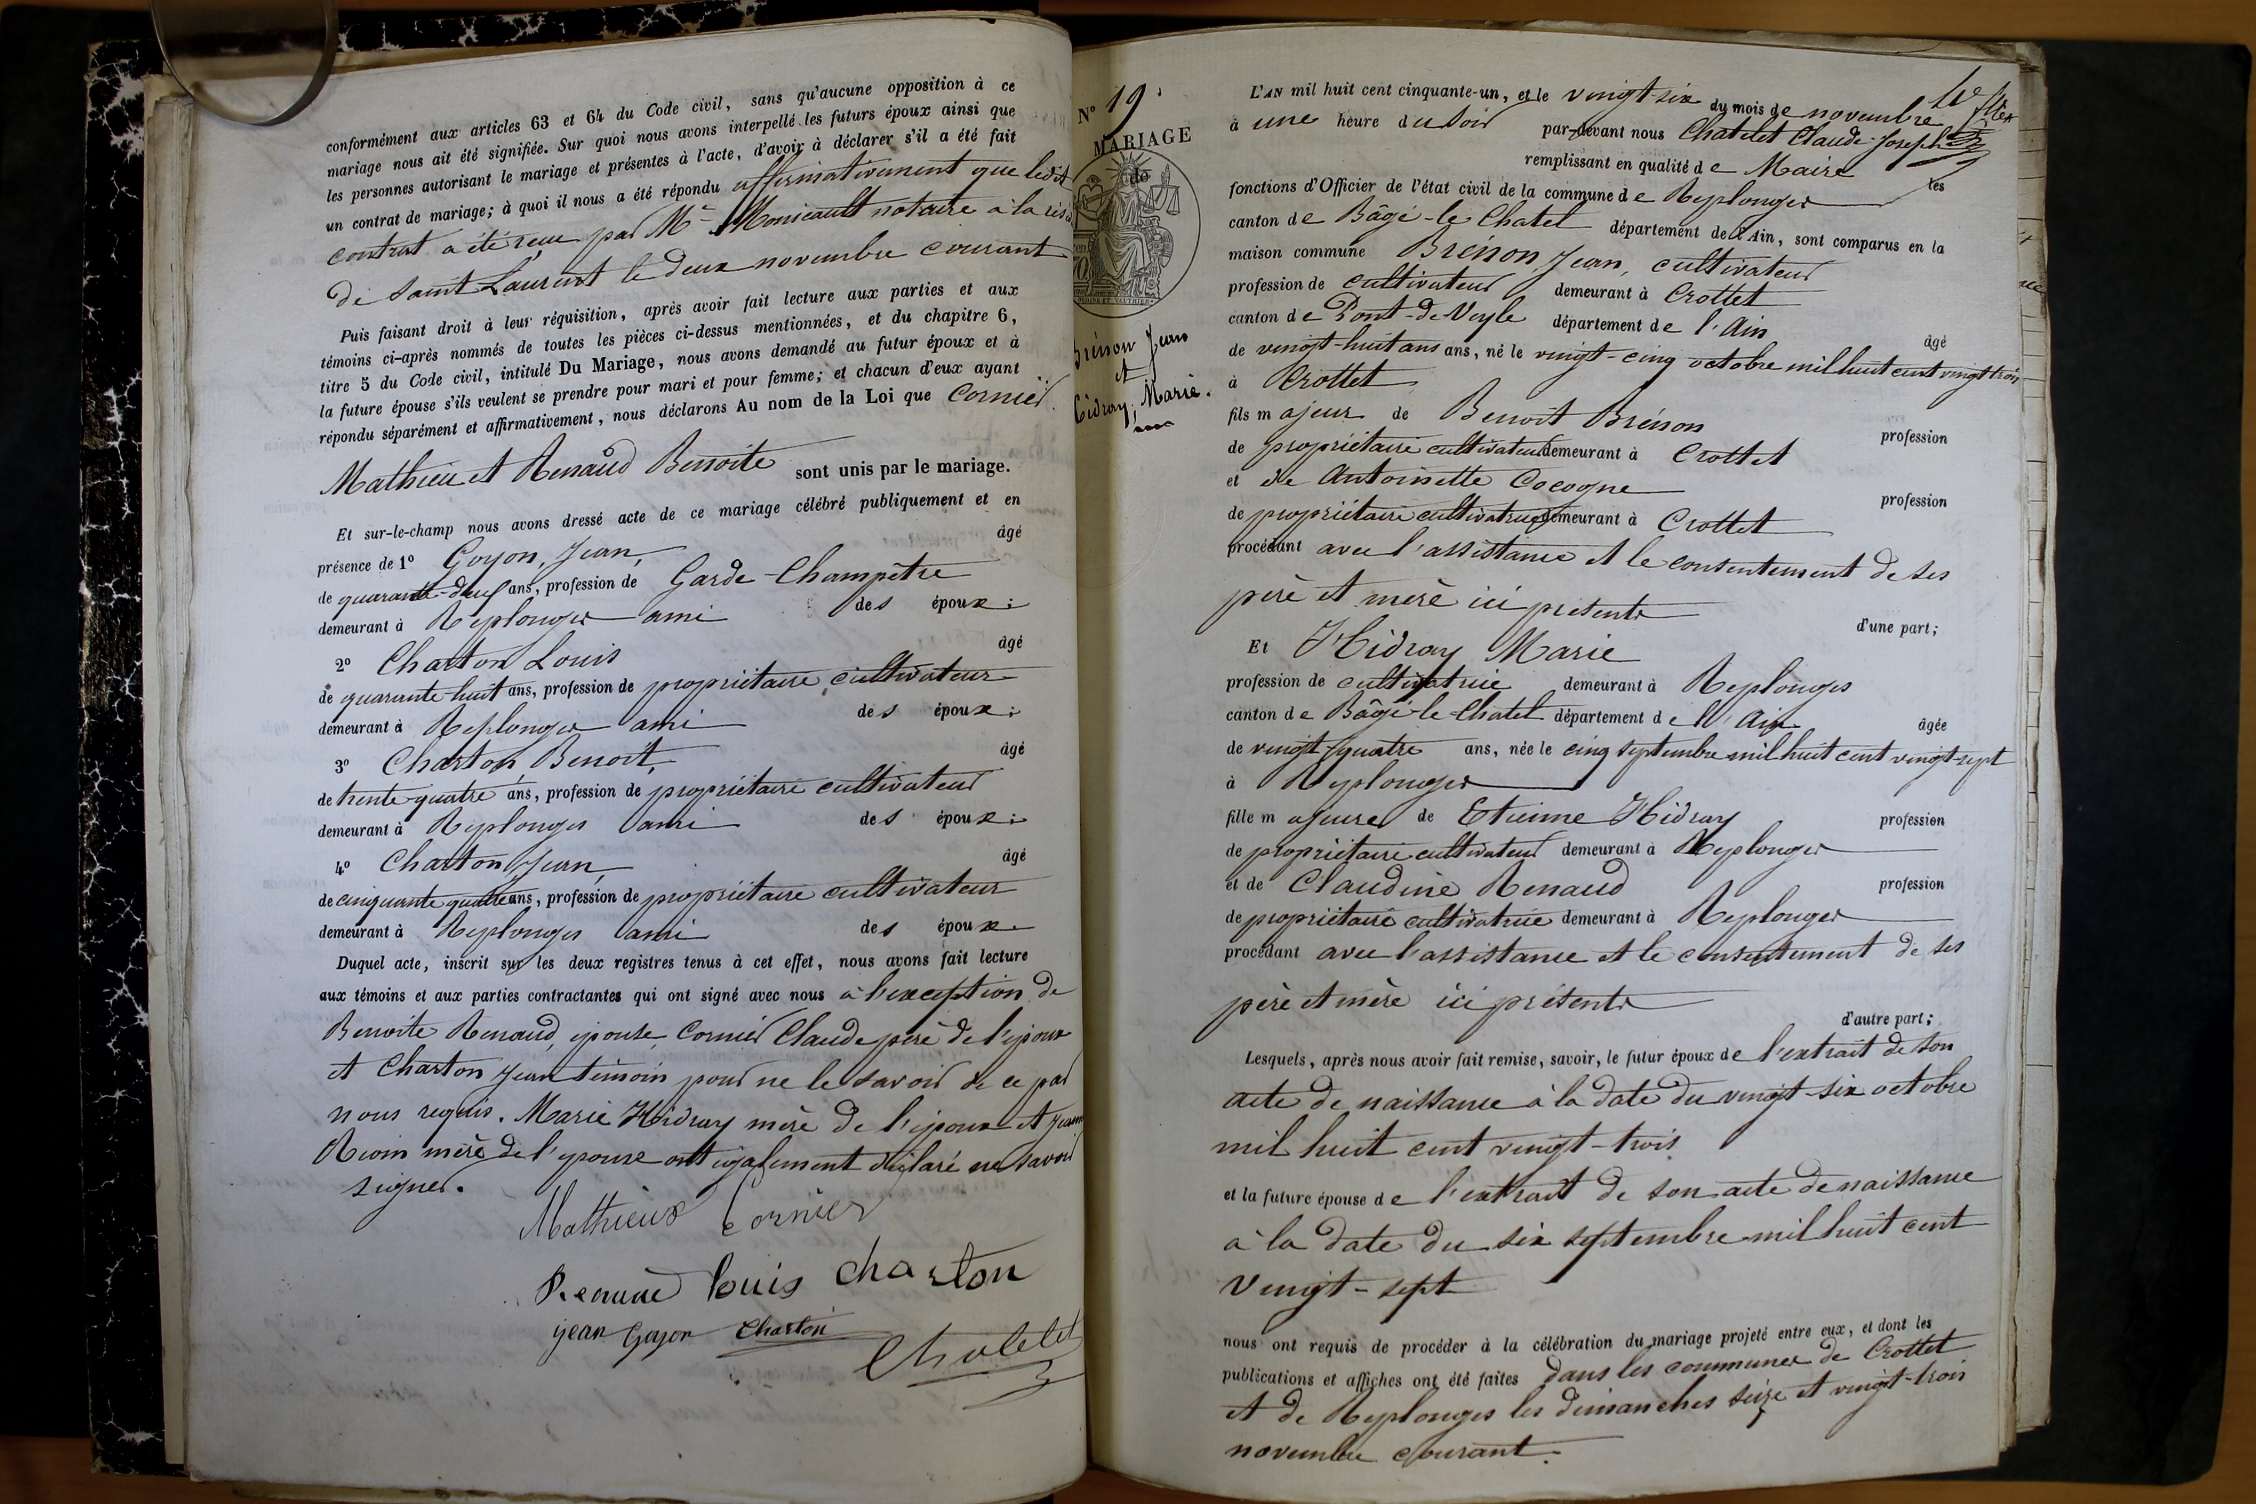 conformément aux articles 63 et 64 du Code civil, sans qu'aucune opposition à ce
mariage nous ait été signifiée. Sur quoi nous avons interpellé les futurs époux ainsi que
les personnes autorisant le mariage et présentes à l'acte, d'avoir à déclarer s'il a été fait
un contrat de mariage; à quoi il nous a été répondu affirmativement que ledit
contrat a été reçu par Me Monicault notaire à la
de Saint Laurent le deux novembre courant
Puis faisant droit à leur réquisition, après avoir fait lecture aux parties et aux
témoins ci-après nommés de toutes les pièces ci-dessus mentionnées, et du chapitre 6,
titre 5 du Code civil, intitulé Du Mariage, nous avons demandé au futur époux et à
la future épouse s'ils veulent se prendre pour mari et pour femme; et chacun d'eux ayant
répondu séparément et affirmativement, nous déclarons Au nom de la Loi que Cornier
Mathieu et Renaud Benoite sont unis par le mariage.
Et sur-le-champ nous avons dressé acte de ce mariage célébré publiquement et en
présence de 1° Goyon, Jean, âgé
de quarante-deux ans, profession de Garde-Champêtre
demeurant à Replonges ami des époux;
2° Charton Louis âgé
de quarante huit ans, profession de propriétaire cultivateur
demeurant à Replonges ami des époux;
3° Charton Benoit, âgé
de trente quatre ans, profession de propriétaire cultivateur
demeurant à Replonges ami des époux;
4° Charton Jean, âgé
de cinquante quatre ans, profession de propriétaire cultivateur
demeurant à Replonges ami des époux.
Duquel acte, inscrit sur les deux registres tenus à cet effet, nous avons fait lecture
aux témoins et aux parties contractantes qui ont signé avec nous à l'exception de
Benoite Renaud, épouse, Cornier Claude père de l'époux
et Charton Jean témoin pour ne le savoir de ce par
nous requis. Marie Hidray mère de l'époux et
mère de l'épouse ont également déclaré ne savoir
signer.
Mathieux Cornier
Renaud louis charton
jean Goyon Charton
Chatelet
N° 19.
MARIAGE
de
Brésson Jean
et
Hidray, Marie.
L'AN mil huit cent cinquante-un, et le vingt-six du mois de novembre
à une heure du soir par-devant nous Chatelet Claude-Joseph
remplissant en qualité de Maire les
fonctions d'Officier de l'état civil de la commune de Replonges
canton de Bâgé-le-Chatel département de l'Ain, sont comparus en la
maison commune Brésson Jean, cultivateur
profession de cultivateur demeurant à Crottet
canton de Pont-de-Veyle département de l'Ain âgé
de vingt-huit ans ans, né le vingt-cinq octobre mil huit cent vingt trois
à Crottet
fils majeur de Benoit Brésson profession
de propriétaire cultivateur demeurant à Crottet
et de Antoinette Cocogne profession
de propriétaire cultivatrice demeurant à Crottet
procédant avec l'assistance et le consentement de ses
père et mère ici présents d'une part;
Et Hidray Marie
profession de cultivatrice demeurant à Replonges
canton de Bâgé-le-Chatel département de l'Ain âgée
de vingt-quatre ans, née le cinq septembre mil huit cent vingt-sept
à Replonges
fille majeure de Etienne Hidray profession
de propriétaire cultivateur demeurant à Replonges
et de Claudine Renaud profession
de propriétaire cultivatrice demeurant à Replonges
procédant avec l'assistance et le consentement de ses
père et mère ici présents
d'autre part;
Lesquels, après nous avoir fait remise, savoir, le futur époux de l'extrait de son
acte de naissance à la date du vingt-six octobre
mil huit cent vingt-trois
et la future épouse de l'extrait de son acte de naissance
à la date du six septembre mil huit cent
vingt-sept
nous ont requis de procéder à la célébration du mariage projeté entre eux, et dont les
publications et affiches ont été faites dans les communes de Crottet
et de Replonges les dimanches seize et vingt-trois
novembre courant.